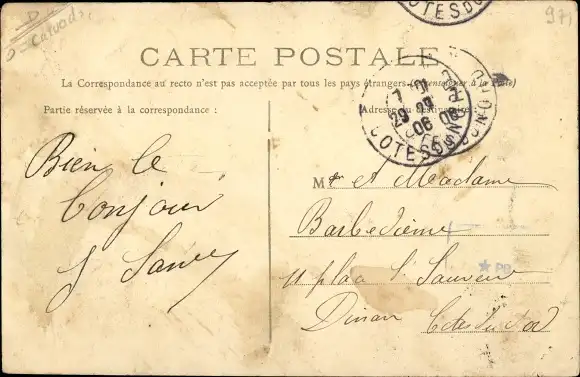 D
Calvados
971
CARTE POSTALE
La Correspondance au recto n'est pas acceptée par tous les pays étrangers (Renseigner à la Poste)
Partie réservée à la correspondance :
Adresse du destinataire
COTES DU NORD
29 06
Bien le
bonjour
Mr et Madame
Barbedienne
11 place St Sauveur
Dinan Cotes du Nord
PB